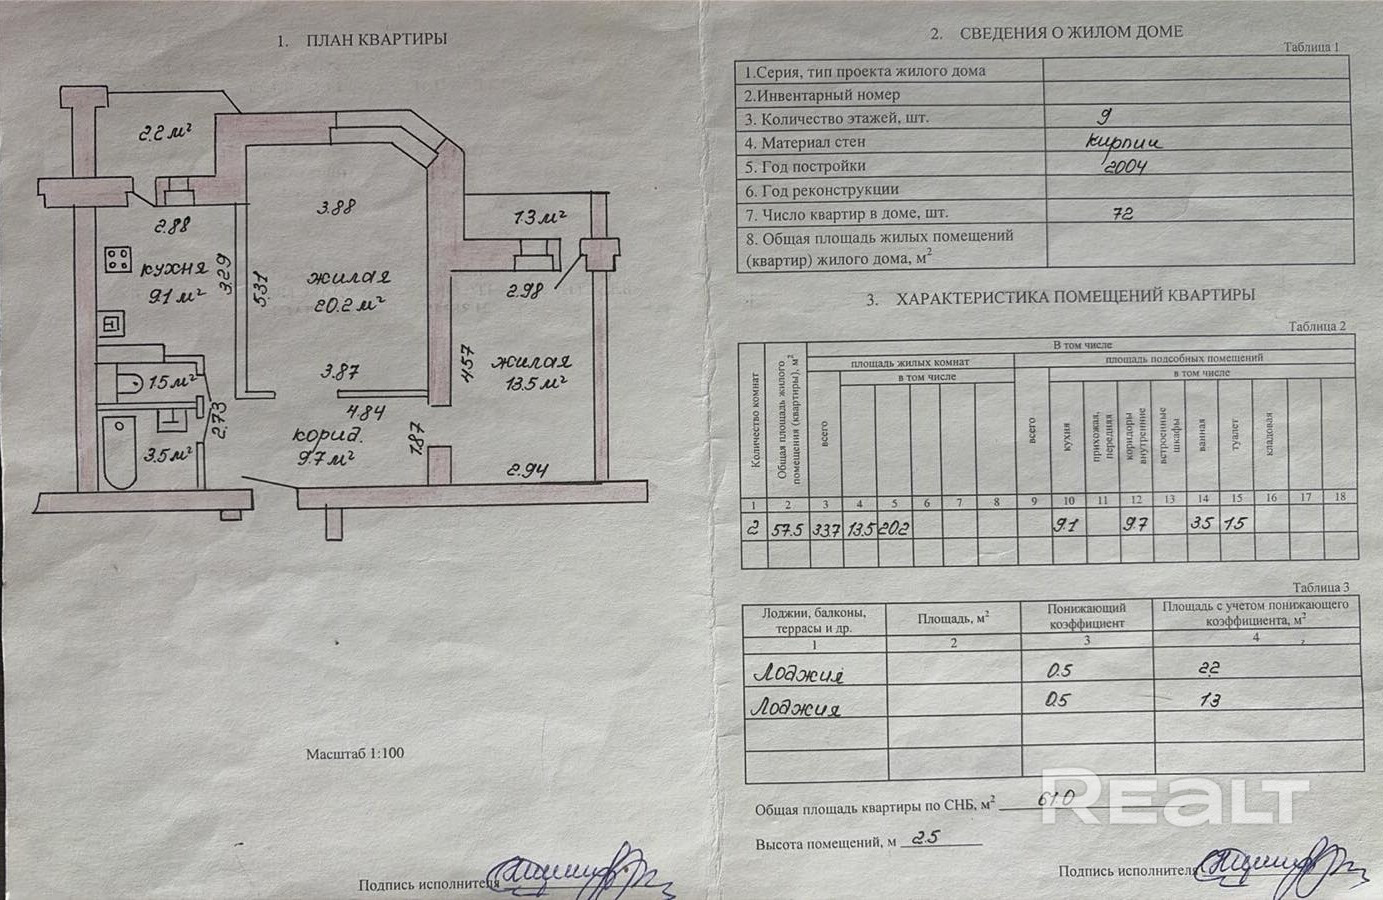 1. ПЛАН КВАРТИРЫ
2.2 м²
2.88
3.88
1.3 м²
кухня
9.1 м²
3.29
5.31
жилая
20.2 м²
2.98
4.57
жилая
13.5 м²
3.87
1.5 м²
2.73
4.84
корид.
9.7 м²
1.87
3.5 м²
2.94
Масштаб 1:100
Подпись исполнителя
2. СВЕДЕНИЯ О ЖИЛОМ ДОМЕ
Таблица 1
1.Серия, тип проекта жилого дома
2.Инвентарный номер
3. Количество этажей, шт. 9
4. Материал стен кирпич
5. Год постройки 2004
6. Год реконструкции
7. Число квартир в доме, шт. 72
8. Общая площадь жилых помещений
(квартир) жилого дома, м²
3. ХАРАКТЕРИСТИКА ПОМЕЩЕНИЙ КВАРТИРЫ
Таблица 2
Количество комнат
Общая площадь жилого
помещения (квартиры), м²
В том числе
площадь жилых комнат
площадь подсобных помещений
всего
в том числе
всего
в том числе
кухня
прихожая,
передняя
коридоры
внутренние
встроенные
шкафы
ванная
туалет
кладовая
1 2 3 4 5 6 7 8 9 10 11 12 13 14 15 16 17 18
2 57.5 33.7 13.5 20.2 9.1 9.7 3.5 1.5
Таблица 3
Лоджии, балконы,
террасы и др.
Площадь, м²
Понижающий
коэффициент
Площадь с учетом понижающего
коэффициента, м²
1 2 3 4
Лоджия 0.5 2.2
Лоджия 0.5 1.3
Общая площадь квартиры по СНБ, м² 61.0
Высота помещений, м 2.5
Подпись исполнителя
REALT